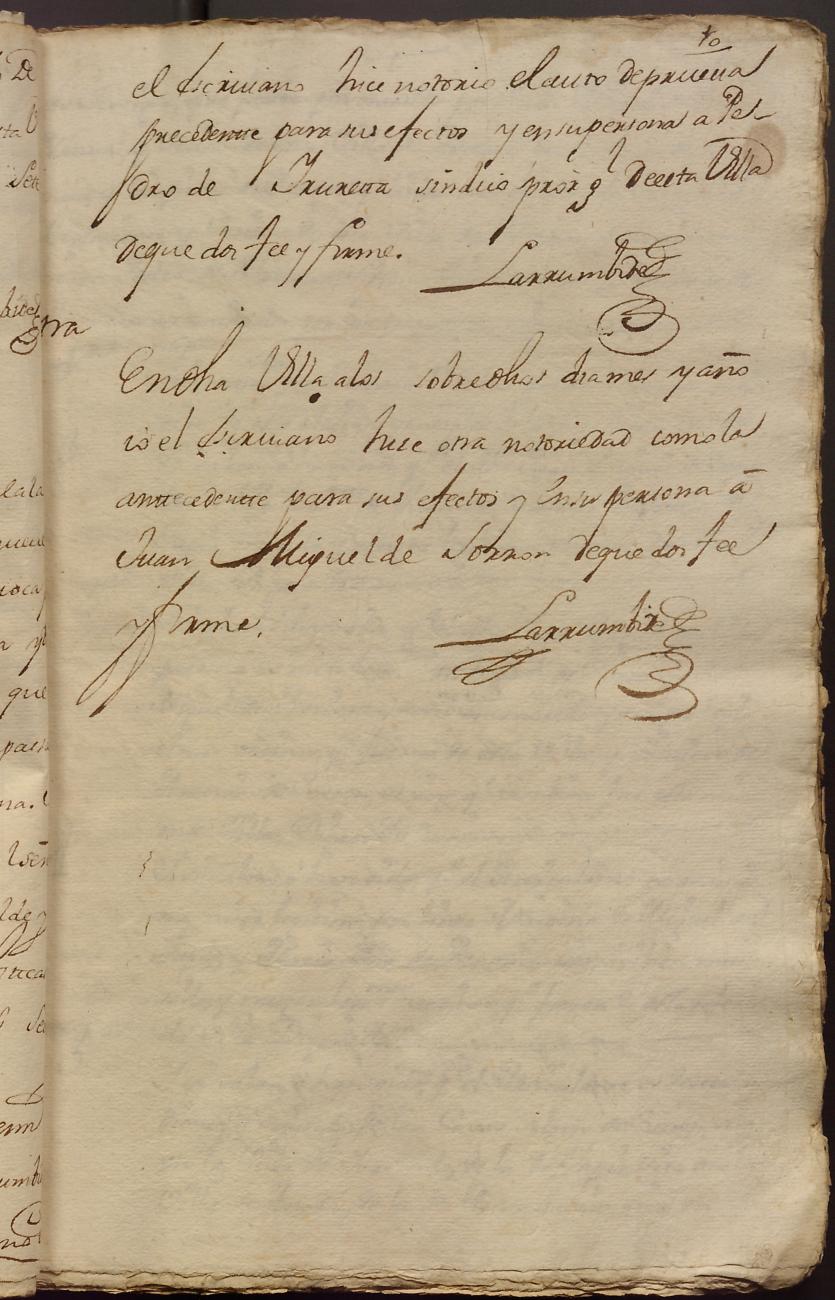 10
el Scriuano hice notorio el auto de prueua
precedente para sus efectos y en su persona a Pe-
dro de Irureta sindico prõr gl. de esta Villa
de que doi fee y firme. Larrumbide
otra
En dha Villa a los sobre dhos dia mes y año
io el Scriuano hice otra notoriedad como la
antecedente para sus efectos y en su persona à
Juan Miguel de Sorron de que doi fee
y firme. Larrumbide